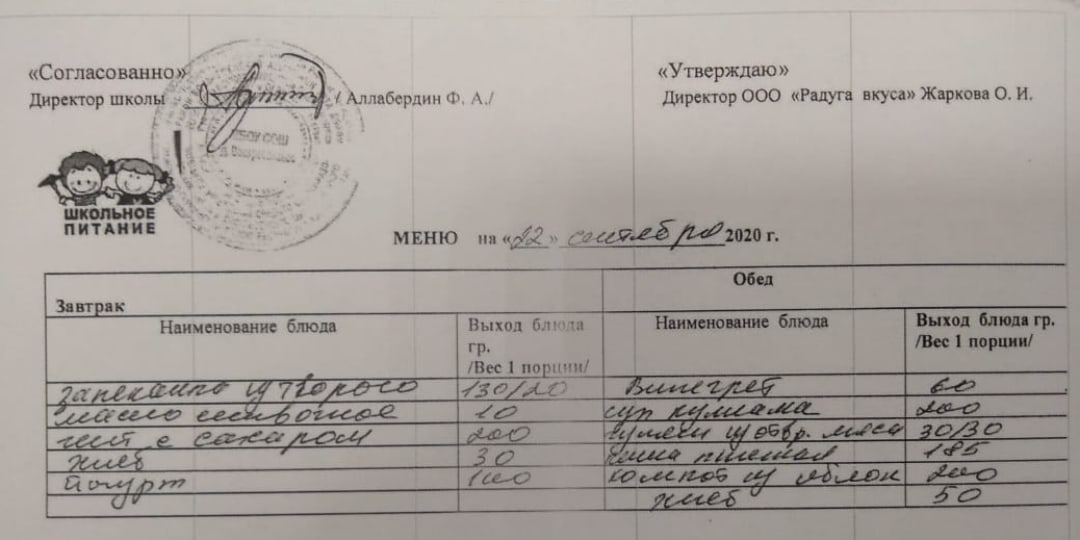 «Согласованно»
«Утверждаю»
Директор школы / Аллабердин Ф. А./
Директор ООО «Радуга вкуса» Жаркова О. И.
МБОУ СОШ
ШКОЛЬНОЕ
ПИТАНИЕ
МЕНЮ на «22» сентября 2020 г.
Завтрак
Обед
Наименование блюда
Выход блюда
гр.
/Вес 1 порции/
Наименование блюда
Выход блюда гр.
/Вес 1 порции/
запеканка из творога 130/20 Винегрет 60
масло сливочное 10 суп кулламa 200
чай с сахаром 200 из отвр. мяса 30/30
хлеб 30 каша 185
йогурт 100 компот из яблок 200
хлеб 50